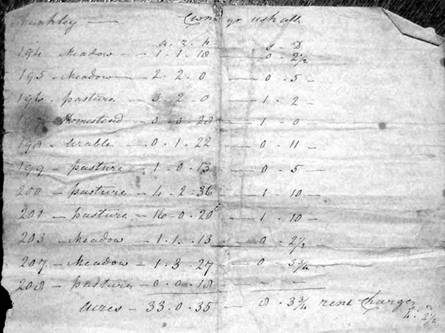 Cwm yr ushall
A. R. P. S D
194 - Meadow - 1 . 1 . 18 - 0 - 2½
195 - Meadow - 2 . 2 . 0 - 0 . 5 -
196 - pasture - 3 . 2 . 0 - 1 . 2 -
Homestead - 1 . 0 -
Arable - 0 . 1 . 22 - 0 . 11 -
199 - pasture - 1 . 0 . 13 - 0 . 5 -
200 - pasture - 4 . 2 . 36 - 1 . 10 -
201 - pasture - 16 . 0 . 20 - 1 . 10 -
203 - Meadow - 1 . 1 . 13 - 0 . 2½
207 - Meadow - 1 . 3 . 27 - 0 . 3¾
208 - pasture - 0 . 0 . 18 -
Acres - 33 . 0 . 35 - 8 . 3¾ rent Charge